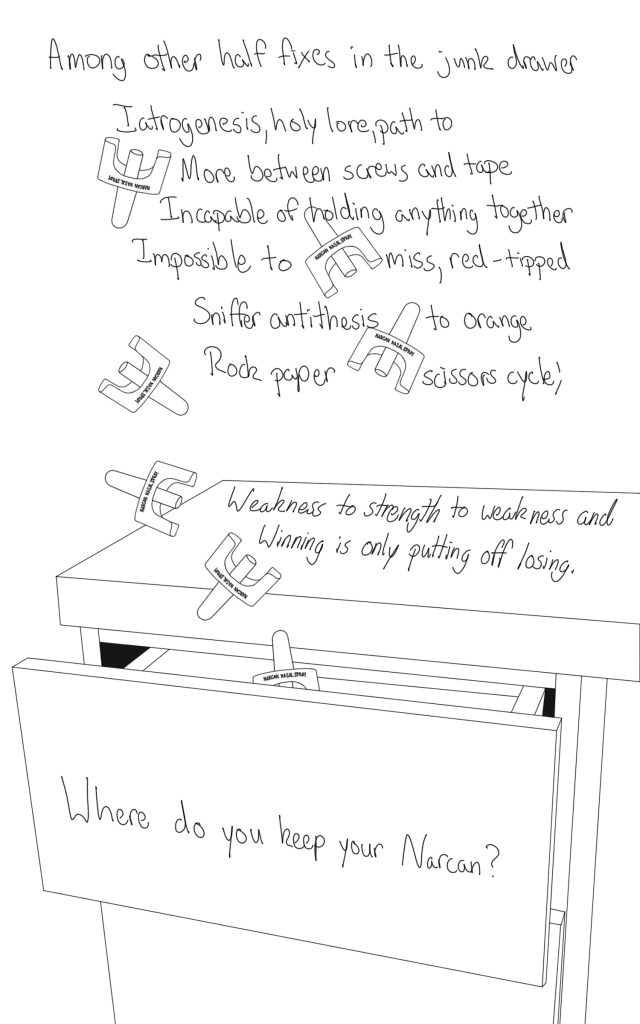 Among other half fixes in the junk drawer
Iatrogenesis, holy lore, path to
More between screws and tape
Incapable of holding anything together
Impossible to miss, red-tipped
Sniffer antithesis to orange
Rock paper scissors cycle;
Weakness to strength to weakness and
Winning is only putting off losing.
Where do you keep your Narcan?
NARCAN NASAL SPRAY
NARCAN NASAL SPRAY
NARCAN NASAL SPRAY
NARCAN NASAL SPRAY
NARCAN NASAL SPRAY
NARCAN NASAL SPRAY
NARCAN NASAL SPRAY